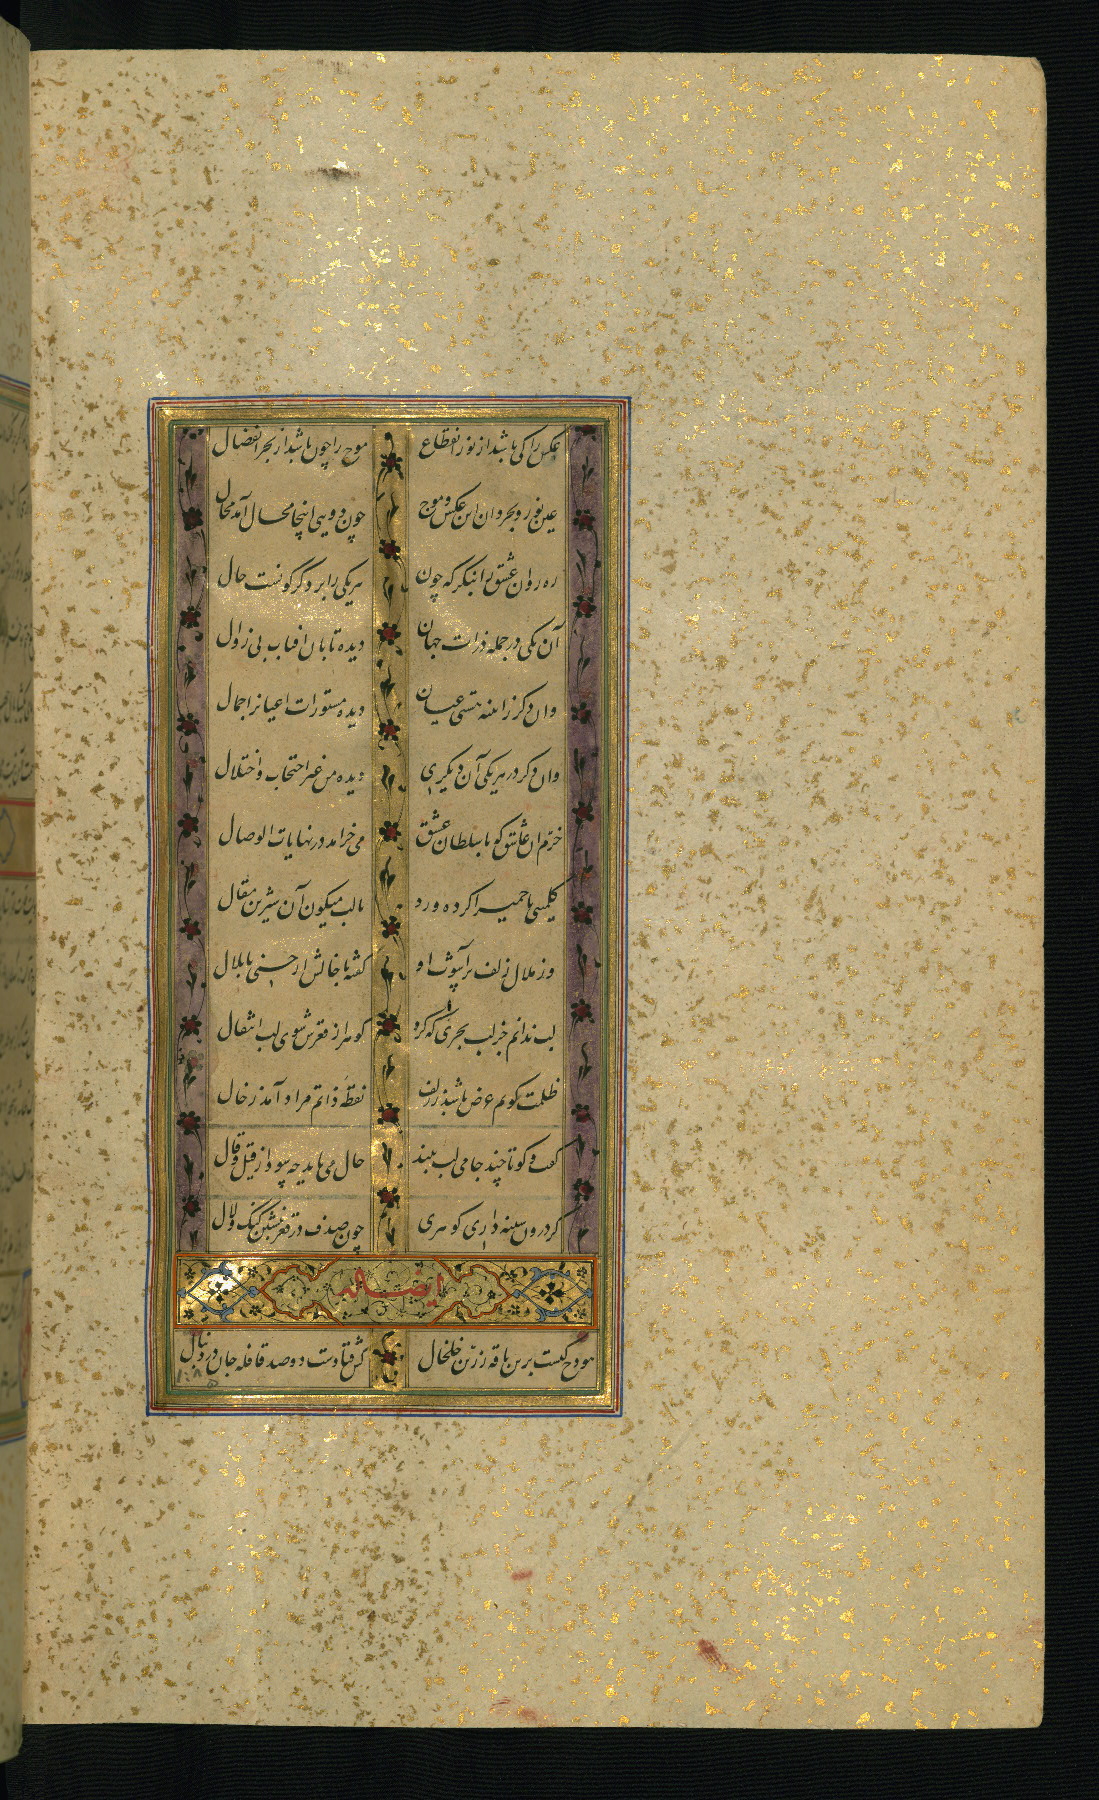 عکس را کی باشد از نور انقطاع موج را چون باشد از بحر انفصال
عین نور و بحر دان این عکس و موج چون دویی اینجا محال آمد محال
ره روان عشق را بنگر که چون هر یکی را بر دگر گونست حال
آن یکی در جمله ذرات جهان دیده تابان افتاب بی زوال
وان دگر ز اینه هستی عیان دیده مستورات اعیان را جمال
وان دگر در هر یکی آن دیگری دیده من غیر احتجاب و اختلال
خرم ان عاشق کو با سلطان عشق می خرامد در نهایات الوصال
کلمینی یا حمیرا کرده ورد با لب میگون آن شیرین مقال
وز ملال زلف پر آشوب او گفته با خالش ارحنی یا بلال
لب ندانم جز لب بحری که کرد گوهر از قعرش سوی لب انتقال
ظلمت کونم عوض باشد ز زلف نقطه ذاتم مراد آمد ز خال
گفت و گو تا چند جامی لب ببند حال می باید چه سود از قیل و قال
گر درون سینه داری گوهری چون صدف در قعر بنشین گنگ و لال
ایضا له
هودج کیست برین ناقه زرین خلخال کش فتادست دو صد قافله جان در دنبال